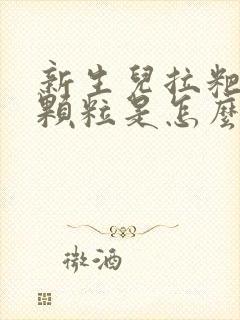 新生兒拉粑
顆粒是怎麼
微酒